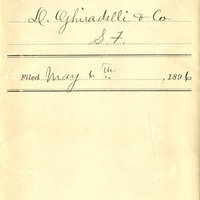 D. Ghiradelli & Co
S. F.
Filed May 6th, 1896